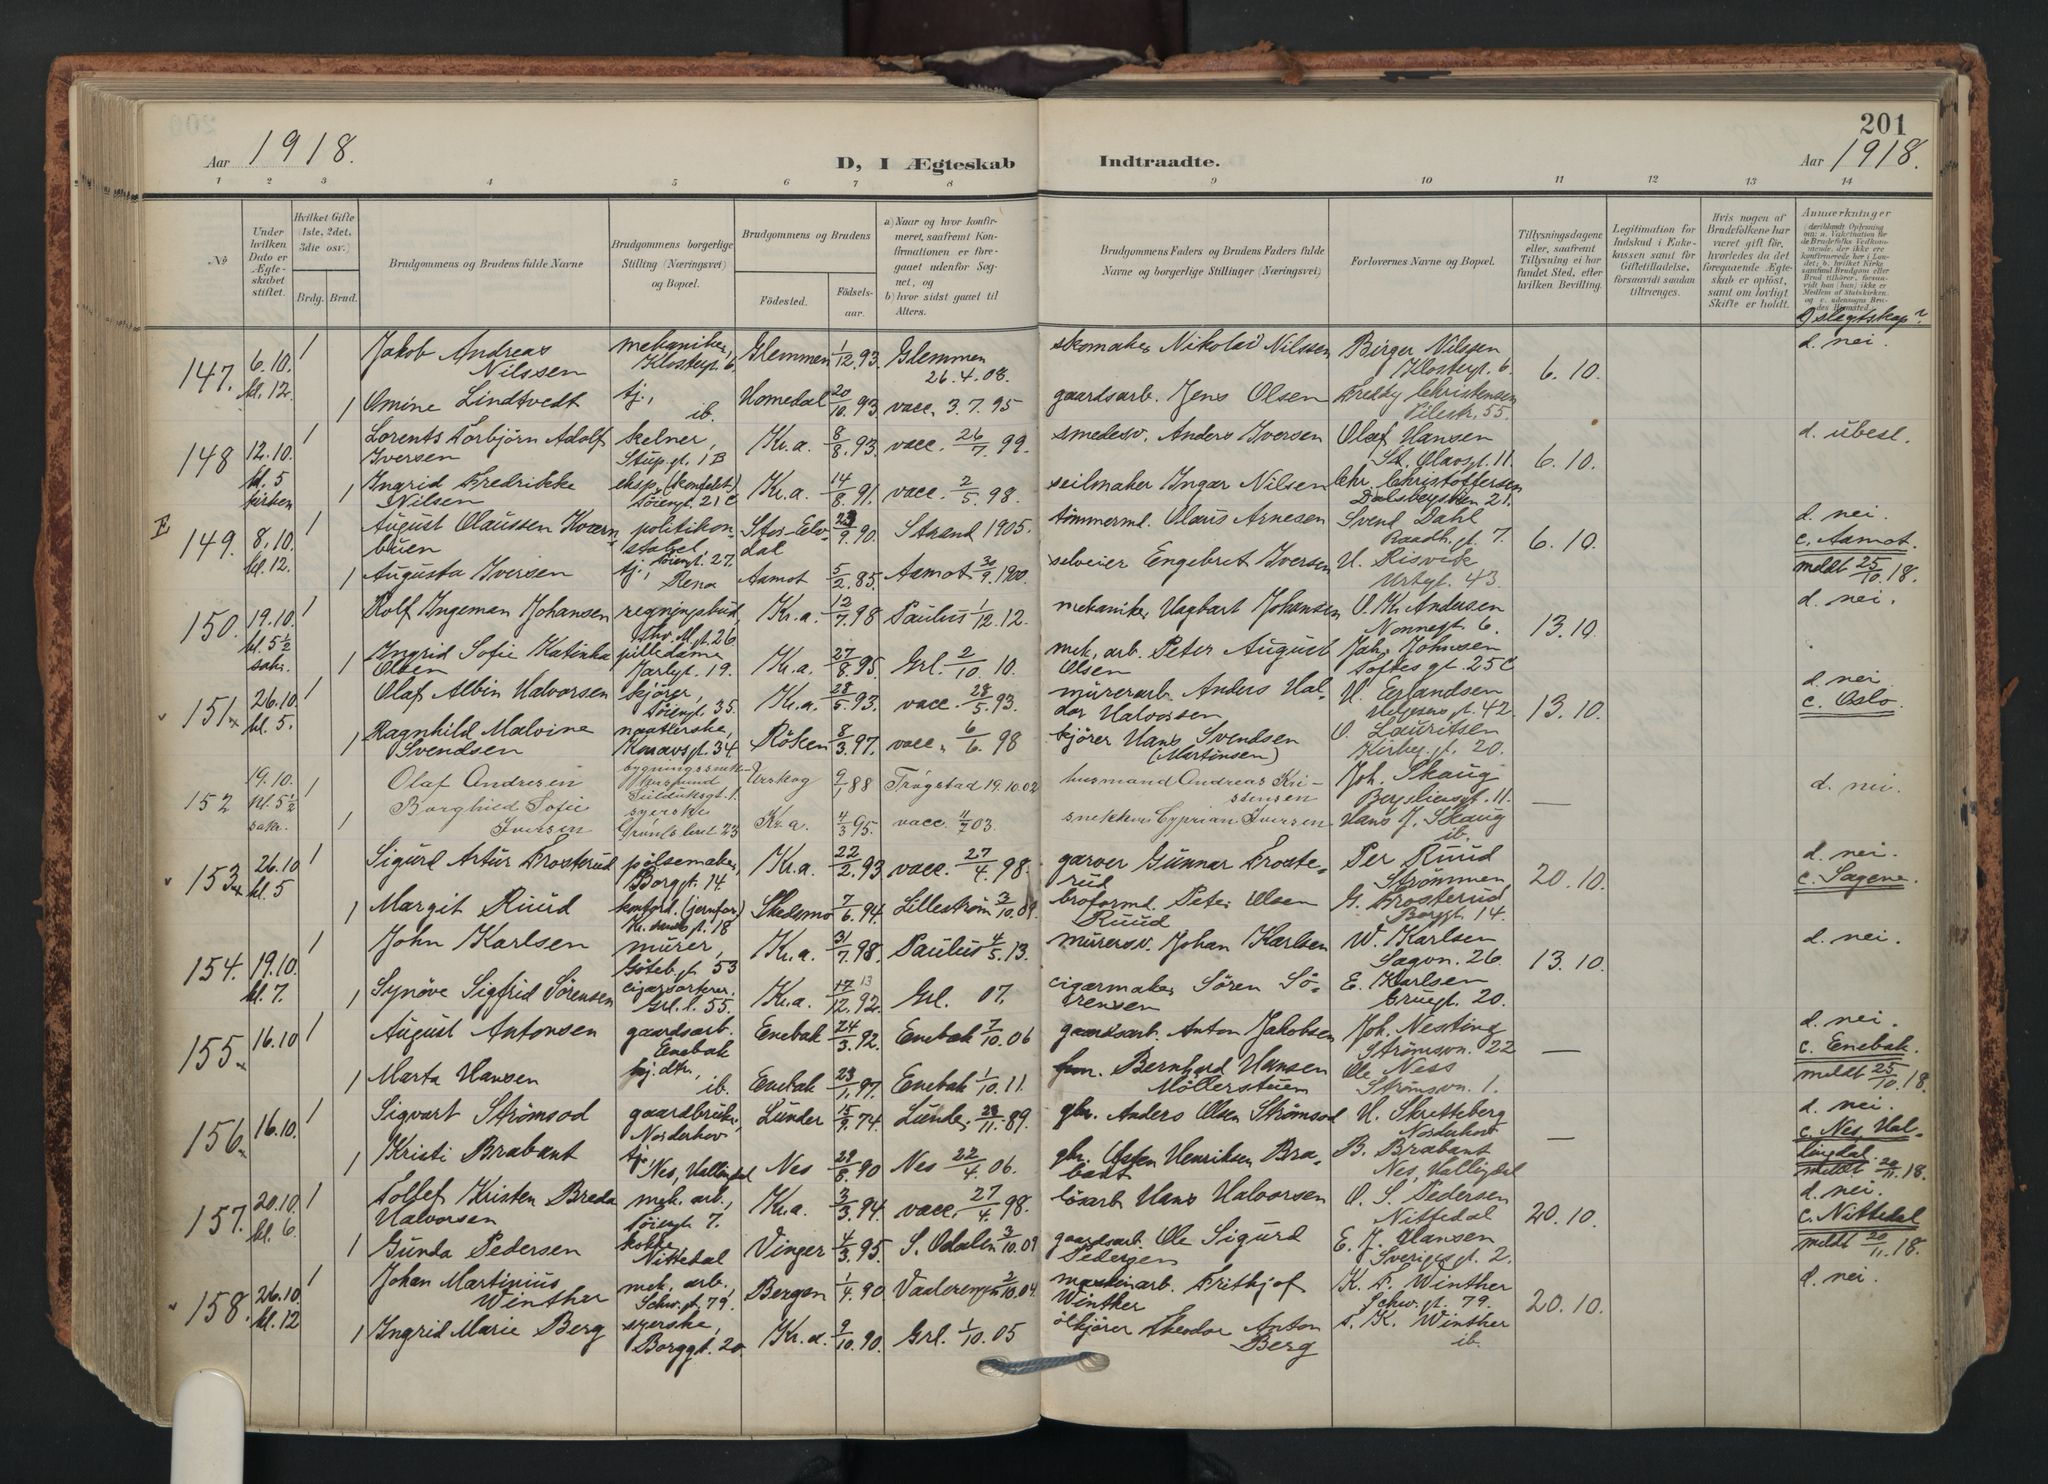 201
Aar 1918.
D, I Ægteskab Indtraadte.
Aar 1918.
1 2 3 4 5 6 7 8 9 10 11 12 13 14
No
Under hvilken Dato er Ægteskabet stiftet.
Hvilket Gifte (1ste, 2det, 3die osv.)
Brdg. Brud.
Brudgommens og Brudens fulde Navne
Brudgommens borgerlige Stilling (Næringsvei) og Bopæl.
Brudgommens og Brudens
Fødested. Fødselsaar.
a) Naar og hvor konfirmeret, saafremt Konfirmationen er foregaaet udenfor Sognet, og
b) hvor sidst gaaet til Alters.
Brudgommens Faders og Brudens Faders fulde Navne og borgerlige Stillinger (Næringsvei)
Forlovernes Navne og Bopæl.
Tillysningsdagene eller, saafremt Tillysning ei har fundet Sted, efter hvilken Bevilling.
Legitimation for Indskud i Enkekassen samt for Giftetilladelse, forsaavidt saadan tiltrænges.
Hvis nogen af Brudefolkene har været gift før, hvorledes da det foregaaende Ægteskab er opløst, samt om lovligt Skifte er holdt.
Anmærkninger
d) slegtskap?
147. 6.10. kl. 12. 1 Jakob Andreas Nilssen mekaniker, Klostergt. 6 Glemmen 1/12.93 Glemmen 26.4.08. skomaker Nikolai Nilssen Birger Nilssen Klostergt. 6. 6.10. d. nei.
1 Omine Lindtvedt tj., ib. Homedal 20/10.93 vacc. 3.7.95 gaardsarb. Jens Olsen Freddy Christensen Pilestr. 55.
148 12.10. kl. 5 kirken 1 Lorents Torbjörn Adolf Iversen kelner, Stup.gt. 1 B Kr.a. 8/8.93 vacc. 26/7.99. smedesv. Anders Iversen Olaf Hansen St. Olavsgt. 11. 6.10. d. ubesl.
1 Ingrid Fredrikke Nilsen eksp. Töiengt. 21 C Kr.a. 14/8.91. vacc. 2/5.98. seilmaker Ingar Nilsen Chr. Christoffersen Dalsbergstien 21.
149. 8.10. kl. 12. 1 August Olaussen Kværnbuen politikonstabel, Töiengt. 27. Stor-Elvdal 23/9.90. Strand 1905. tömmermd. Olaus Arnesen Svend Dahl Raadh.gt. 7. 6.10. d. nei. c. Aamot. meldt 25/10.18.
1 Augusta Iversen tj., Rena Aamot 5/2.85. Aamot 30/9.1900. selveier Engebret Iversen H. Risvik Urtegt. 43.
150. 19.10. kl. 5 1/2 sakr. 1 Rolf Ingeman Johansen regningsbud, Thv. M.gt. 26 Kr.a. 12/7.98 Paulus 1/12.12. mekaniker Hagbart Johansen O. Kr. Andersen Nonnegt. 6. 13.10. d. nei.
1 Ingrid Sofie Katinka Olsen pilledame Jarlegt. 19. Kr.a. 27/8.95. Grl. 2/10.10. mek. arb. Peter August Olsen Joh. Johnsen Toftes gt. 25 C
151. 26.10. kl. 5. 1 Olaf Albin Halvorsen kjörer, Töiengt. 35. Kr.a. 28/5.93. vacc. 28/5.93. murerarb. Anders Haldor Halvorsen H. Erlandsen Helgesens gt. 42. 13.10. d. nei c. Oslo.
1 Ragnhild Malvine Svendsen naatlerske, Konowsgt. 34 Röken 8/3.97. vacc. 6/6.98 kjörer Hans Svendsen (Martinsen) O. Lauritsen Kirkeg.gt. 20.
152 19.10. kl. 5 1/2 sakr. 1 Olaf Andresen bygningssnek. Hurslund Toldbuksgt. 1. Urskog 9/1 88 Trögstad 19.10.02 husmand Andreas Kristensen Joh. Skaug Bergsliensgt. 11. — d. nei.
1 Borghild Sofie Iversen syerske Grönl.s leret 23 Kr.a. 4/3.95. vacc. 4/7.03. snekker Cyprian Iversen Hans J. Skaug ib.
153. 26.10 kl. 5 1 Sigurd Artur Frosterud pölsemaker Borggt. 14. Kr.a. 22/2.93 vacc. 27/4.98. garver Gunnar Frosterud Per Ruud Strömmen 20.10. d. nei. c. Sagene.
1 Margit Ruud kontord. (jernfor.) 18 Skedsmo 7/6.94. Lilleström 3/10.09. broformd. Peter Olsen Ruud G. Frosterud Borggt. 14.
154. 19.10. kl. 7. 1 John Karlsen murer, Göteb.gt. 53 Kr.a. 31/7.98. Paulus 4/5.13. murersv. Johan Karlsen W. Karlsen Sagvn. 26. 13.10. d. nei.
1 Synöve Sigfrid Sörensen cigarsorterer. Grl. l. 55. Kr.a. 17/12.92. Grl. 07. cigarmaker Sören Sörensen E. Karlsen Cruugt. 20.
155. 16.10 1 August Antonsen gaardsarb. Enebak Enebak 24/3.92. Enebak 7/10.06 gaardsarb. Anton Jakobsen Joh. Nesting Strömsvn. 22 — d. nei. c. Enebak. meldt 25/10.18.
1 Marta Hansen hj. dtr., ib. Enebak 23/1.97. Enebak 1/10.11. Bernhard Hansen Möllerstuen Ole Ness Strömsvn. 1.
156. 16.10. 1 Sigvart Strömsod gaardbruker, Norderhov Lunder 15/9.74. Lunder 28/11.89. gbr. Anders Olsen Strömsod H. Skretteberg Norderhov — d. nei. c. Nes, Hallingdal. meldt 20/11.18.
1 Kristi Brabant tj. Nes, Hallingdal Nes 29/8.90 Nes 22/4.06. gbr. Henriksen Brabant B. Brabant Nes, Hallingdal
157. 20.10. kl. 6 1 Tollef Kristen Breda Halvorsen mek. arb., Töiengt. 7. Kr.a. 3/3.94. vacc. 27/4.98. lösarb. Hans Halvorsen O. S. Pedersen Nittedal 20.10. d. nei. c. Nittedal meldt 20/11.18.
1 Gunda Pedersen kokke Nittedal Vinger 4/3.95. S. Odalen 3/10.09 gaardsarb. Ole Sigurd Pedersen E. J. Hansen Sverigesgt. 2.
158. 26.10. kl. 12 1 Johan Martinius Winther mek. arb., Schw. gt. 79. Bergen 1/4.90 Vaalerengen 2/10.04. maskinarb. Frithjof Winther K. F. Winther Schw. gt. 79. 20.10. d. nei.
1 Ingrid Marie Berg syerske, Borggt. 20 Kr.a. 9/10.90. Grl. 1/10.05 ölkjörer Theodor Anton Berg K. Winther ib.